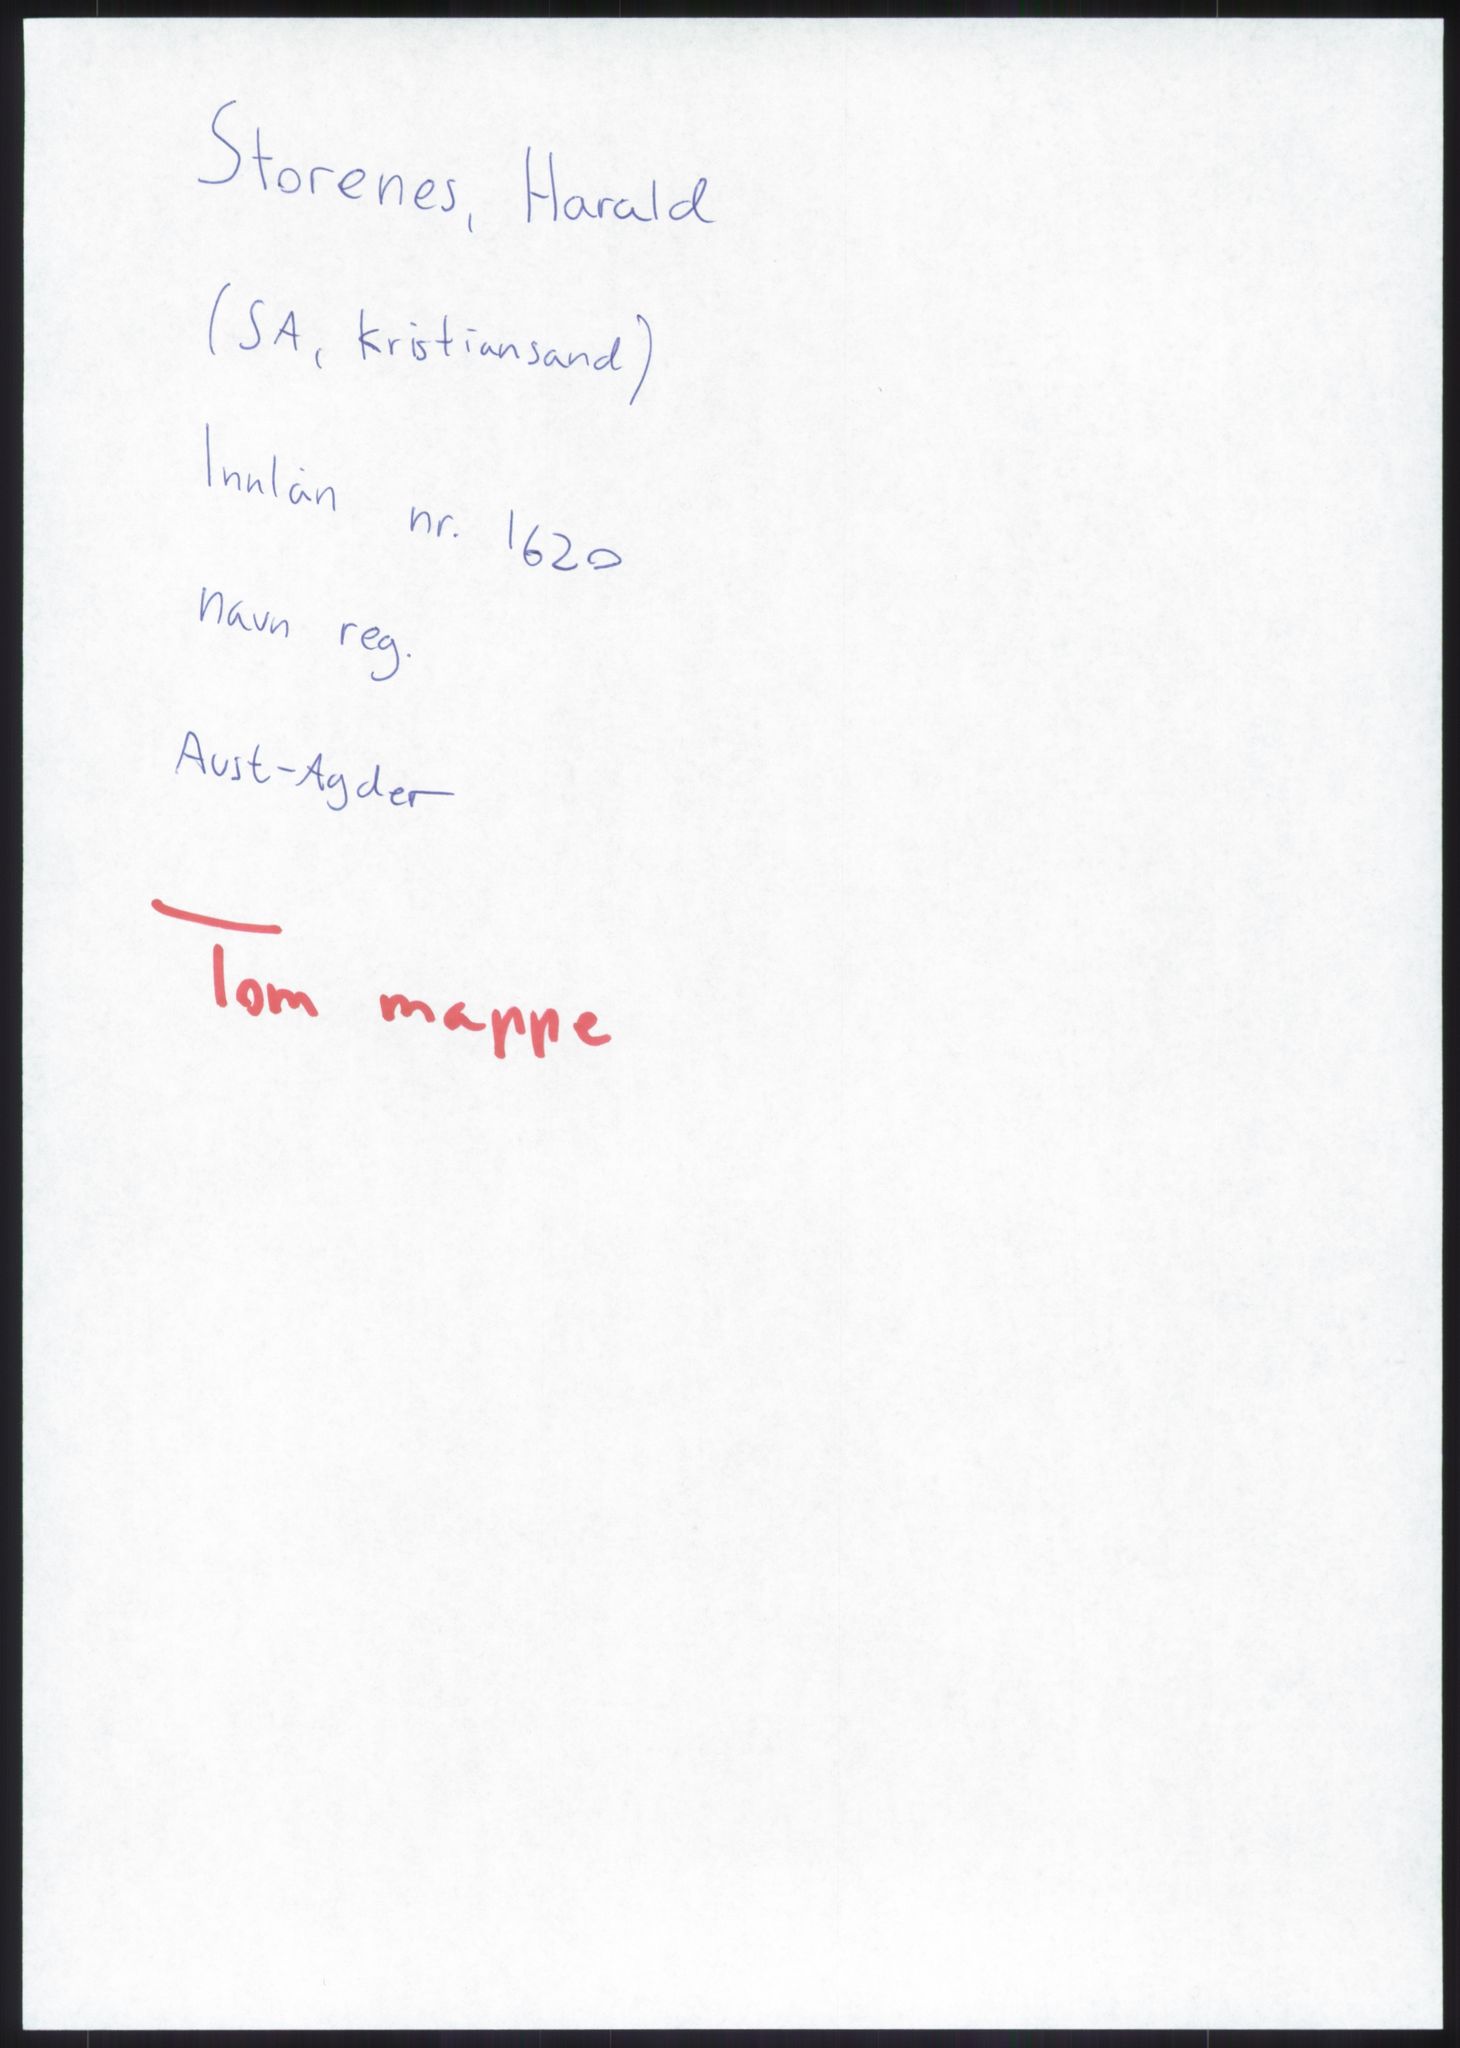 Storenes, Harald
(SA, Kristiansand)
Innlån nr. 1620
navn reg.
Aust-Agder
Tom mappe